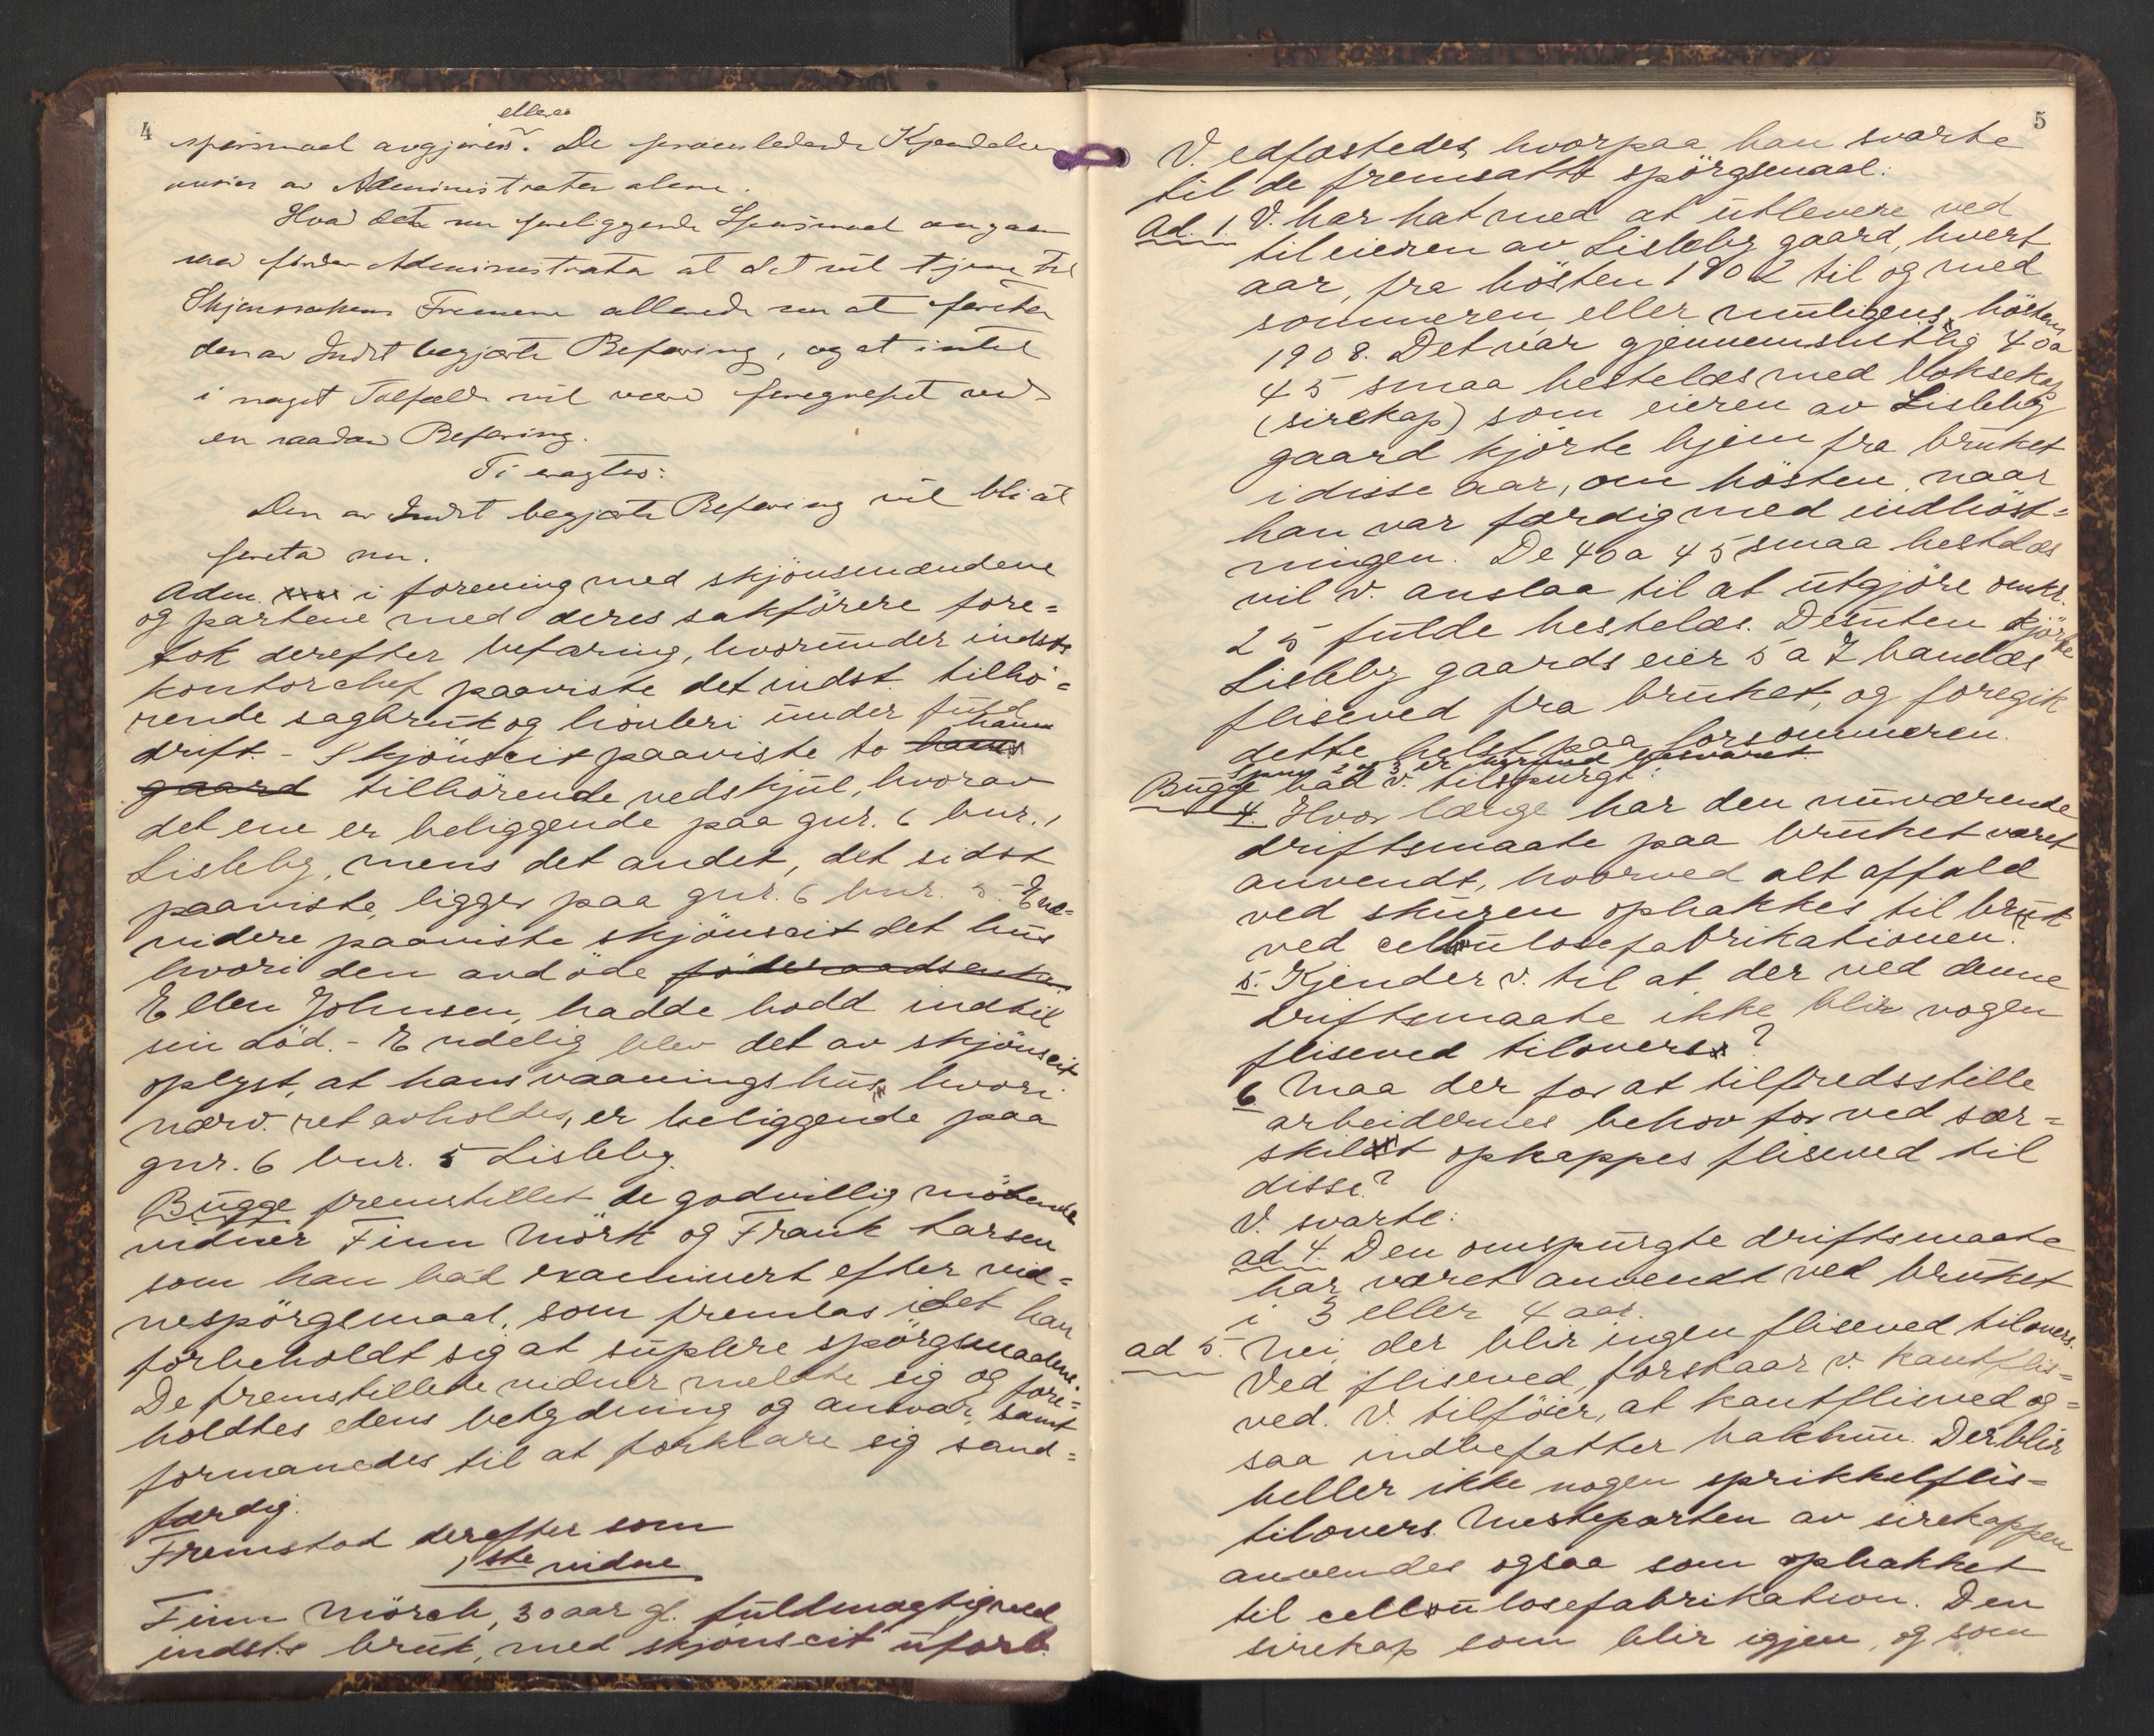 4
ellers
spørsmaal avgjøres. De Kjendelser
avsies av Administrator alene.
Hvad det nu foreliggende Spørsmaal angaar
saa finder Administrator at det vil tjene til
Skjønssakens Fremme allerede nu at foreta
den av Indst begjærte Befaring, og at intet
i noget Tilfælde vil være foregrepet ved
en saadan Befaring.
Ti eragtes:
Den av Indst begjærte Befaring vil bli at
foreta nu.
Adm. i forening med skjönsmændene
og partene med deres sakförere fore=
tok derefter befaring, hvorunder indsts
kontorchef paaviste det indst. tilhö=
rende sagbruk og hövleri under fuld
drift. - Skjönscit paaviste to ham
gaard tilhörende vedskjul, hvorav
det ene er beliggende paa gnr. 6 bnr. 1
Lisleby, mens det andet, det sidst
paaviste, ligger paa gnr. 6 bnr. 5. End=
videre paaviste skjönscit det hus
hvori den avdöde föderaadsenke
Ellen Johnsen, hadde bodd indtil
sin död. - Endelig blev det av skjönscit
oplyst, at hans vaaningshus, hvori
nærv. ret avholdes, er beliggende paa
gnr. 6 bnr. 5 Lisleby.
Bugge fremstillet de godvillig mötende
vidner Finn Mörk og Frank Larsen
som han bad examinert efter vid=
nespörgsmaal, som fremlas idet han
forbeholdt sig at suplere spörgsmaalene.
De fremstillede vidner meldte sig og fore=
holdtes edens betydning og ansvar, samt
formanedes til at forklare sig sand=
færdig.
Fremstod derefter som
1ste vidne
Finn Mörch, 30 aar gl. fuldmægtig ved
indsts bruk, med skjönscit uforb.
5
V. edfæstedes, hvorpaa han svarte
til de fremsatte spörgsmaal:
Ad. 1. V. har hat med at utlevere ved
til eieren av Lisleby gaard, hvert
aar, fra hösten 1902 til og med
sommeren, eller muligens hösten
1908. Det var gjennemsnitlig 40 a
45 smaa hestelæs med boksekap
(sirekap) som eieren av Lisleby
gaard kjörte hjem fra bruket
i disse aar, om hösten, naar
han var færdig med indhöst=
ningen. De 40 a 45 smaa hestelæs
vil v. anslaa til at utgjöre omkr.
25 fulde hestelæs. Desuten kjörte
Lisleby gaards eier 5 a 7 baandlæs
flisved fra bruket, og foregik
dette helst paa forsommeren.
Spm. 2 og 3 er herved besvaret.
Bugge bad v. tilspurgt:
4. Hvor længe har den nuværende
driftsmaate paa bruket været
anvendt, hvorved alt affald
ved skuren ophakkes til bruk
ved cellulosefabrikationen?
5. Kjender v. til at der ved denne
driftsmaate ikke blir nogen
flisved tilovers?
6 Maa der for at tilfredsstille
arbeidernes behov for ved sær=
skilt opkappes flisved til
disse?
V. svarte:
ad 4. Den omspurgte driftsmaate
har været anvendt ved bruket
i 3 eller 4 aar.
ad 5. Nei, der blir ingen flisved tilovers.
Ved flisved, forstaar v. kantflis=
ved. V. tilföier, at kantflisved og=
saa indbefatter bakhun. Der blir
heller ikke nogen sprikkelflis=
tilovers. Mesteparten av sirekappen
anvendes ogsaa som ophakket
til cellulosefabrikation. Den
sirekap som blir igjen, og som